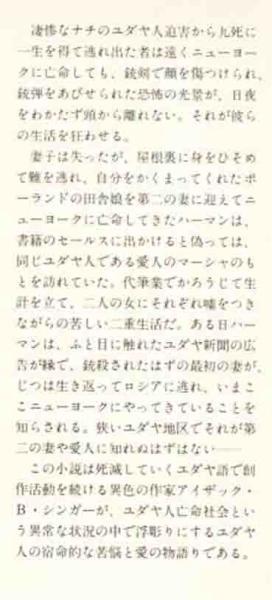 凄惨なナチのユダヤ人迫害から九死に
一生を得て逃れ出た者は遠くニューヨー
クに亡命しても、銃剣で顔を傷つけられ、
銃弾をあびせられた恐怖の光景が、日夜
をわかたず頭から離れない。それが彼ら
の生活を狂わせる。
妻子は失ったが、屋根裏に身をひそめ
て難を逃れ、自分をかくまってくれたポ
ーランドの田舎娘を第二の妻に迎えてニ
ューヨークに亡命してきたハーマンは、
書籍のセールスに出かけると偽っては、
同じユダヤ人である愛人のマーシャのも
とを訪れていた。代筆業でかろうじて生
計を立て、二人の女にそれぞれ嘘をつき
ながらの苦しい二重生活だ。ある日ハー
マンは、ふと目に触れたユダヤ新聞の広
告が縁で、銃殺されたはずの最初の妻が、
じつは生き返ってロシアに逃れ、いまこ
こニューヨークにやってきていることを
知らされる。狭いユダヤ地区でそれが第
二の妻や愛人に知れぬはずはない──
この小説は死滅していくユダヤ語で創
作活動を続ける異色の作家アイザック・
B・シンガーが、ユダヤ人亡命社会とい
う異常な状況の中で浮彫りにするユダヤ
人の宿命的な苦悩と愛の物語りである。